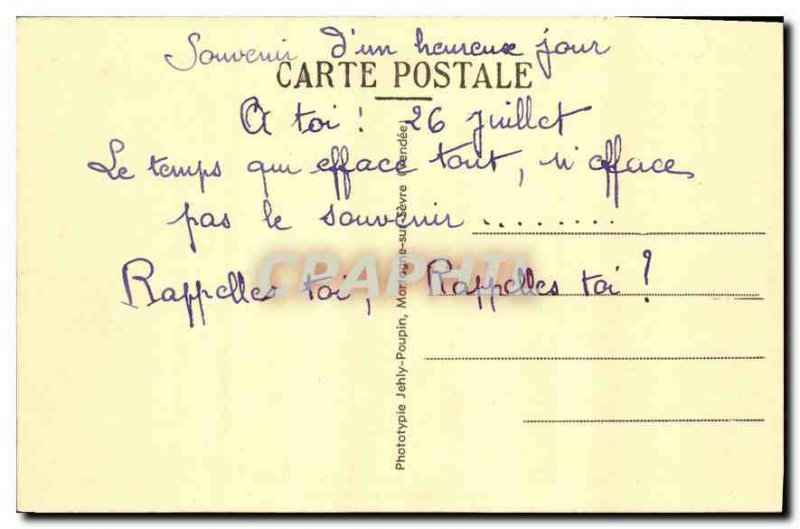 Souvenir d'un heureuse jour
CARTE POSTALE
A toi ! 26 Juillet
Le temps qui efface tout, n'efface
pas le souvenir .........
Rappelles toi, Rappelles toi !
CPAPHIL
Phototypie Jehly-Poupin, Mortagne-sur-Sèvre (Vendée)